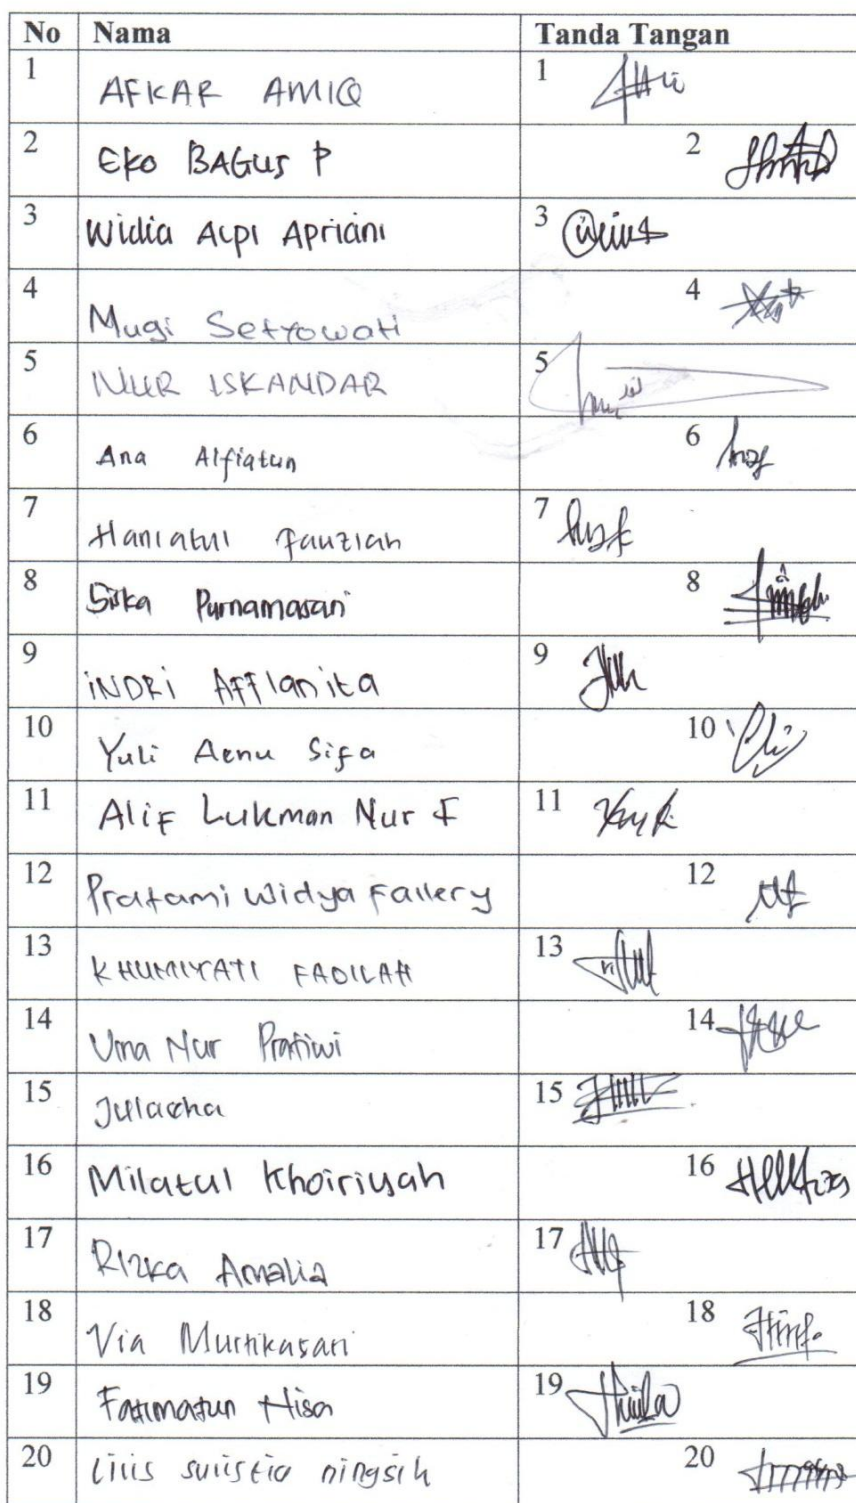 No Nama Tanda Tangan
1 AFKAR AMIQ 1
2 Eko BAGUS P 2
3 Widia Alpi Apriani 3
4 Mugi Setyowati 4
5 NUR ISKANDAR 5
6 Ana Alfiatun 6
7 Haniatul Fauziah 7
8 Siska Purnamasari 8
9 iNDRi Afflanita 9
10 Yuli Aenu Sifa 10
11 Alif Lukman Nur F 11
12 Pratami Widya Failery 12
13 KHUMIYATI FADILAH 13
14 Uma Nur Pratiwi 14
15 Julaeha 15
16 Milatul Khoiriyah 16
17 Rizka Amalia 17
18 Via Murtikasari 18
19 Fatimatun Nisa 19
20 Lilis sulistia ningsih 20